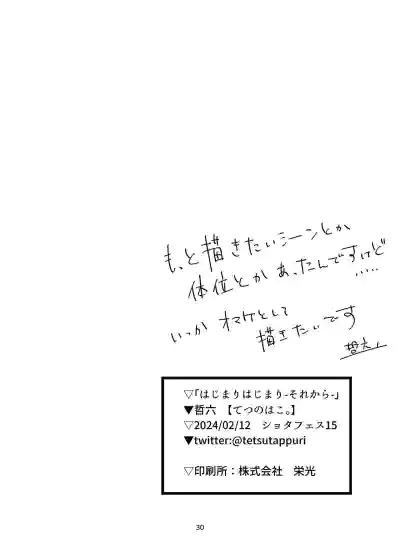 もっと描きたいシーンとか
体位とかあったんですけど
.....
いつかオマケとして
描きたいです
哲六
▽「はじまりはじまり-それから-」
▼哲六 【てつのはこ。】
▽2024/02/12 ショタフェス15
▼twitter:@tetsutappuri
▽印刷所：株式会社 栄光
30